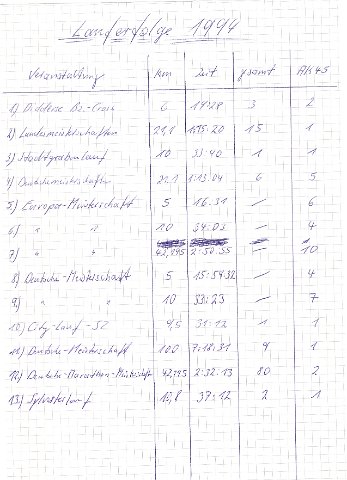 Lauferfolge 1994
Veranstaltung km Zeit gesamt AK45
1) Bz.-Cross 6 3 2
2) Landesmeisterschaften 21,1 1:15:20 15 1
3) Stadtgrabenlauf 10 33:40 1 1
4) 21,1 1:13:04 6 5
5) Europa-Meisterschaft 5 16:31 – 6
6) " " 10 34:03 – 4
7) 42,195 2:50:55 – 10
8) Deutsche-Meisterschaft 5 15:54:32 – 4
9) " " 10 33:23 – 7
10) City-Lauf-SZ 9,5 31:12 1 1
11) Deutsche-Meisterschaft 100 7:18:31 9 1
12) Deutsche-Marathon-Meisterschaft 42,195 2:32:13 80 2
13) Sylvesterlauf 10,8 37:12 2 1